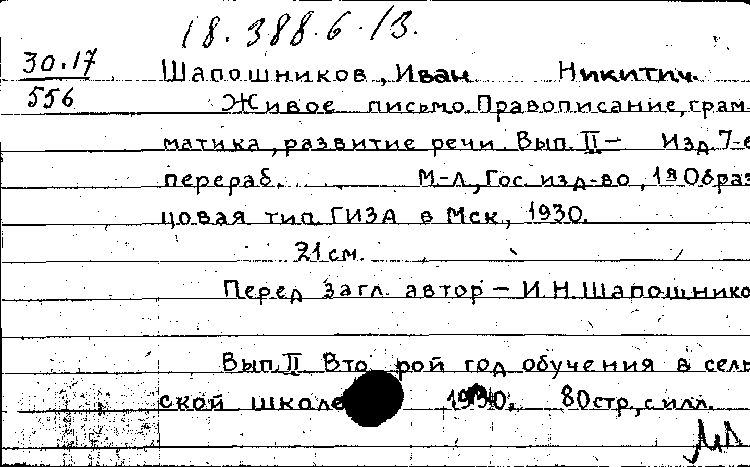 18.388.6.13.
30.17
556
Шапошников, Иван Никитич.
Живое письмо. Правописание, грам-
матика, развитие речи. Вып. II – Изд. 7-е
перераб. М-Л, Гос. изд-во, 1я Образ
цовая тип. ГИЗА в Мск., 1930.
21 см.
Перед загл. автор – И.Н. Шапошнико
Вып. II Второй год обучения в сель
ской школе 1930. 80 стр., с илл.